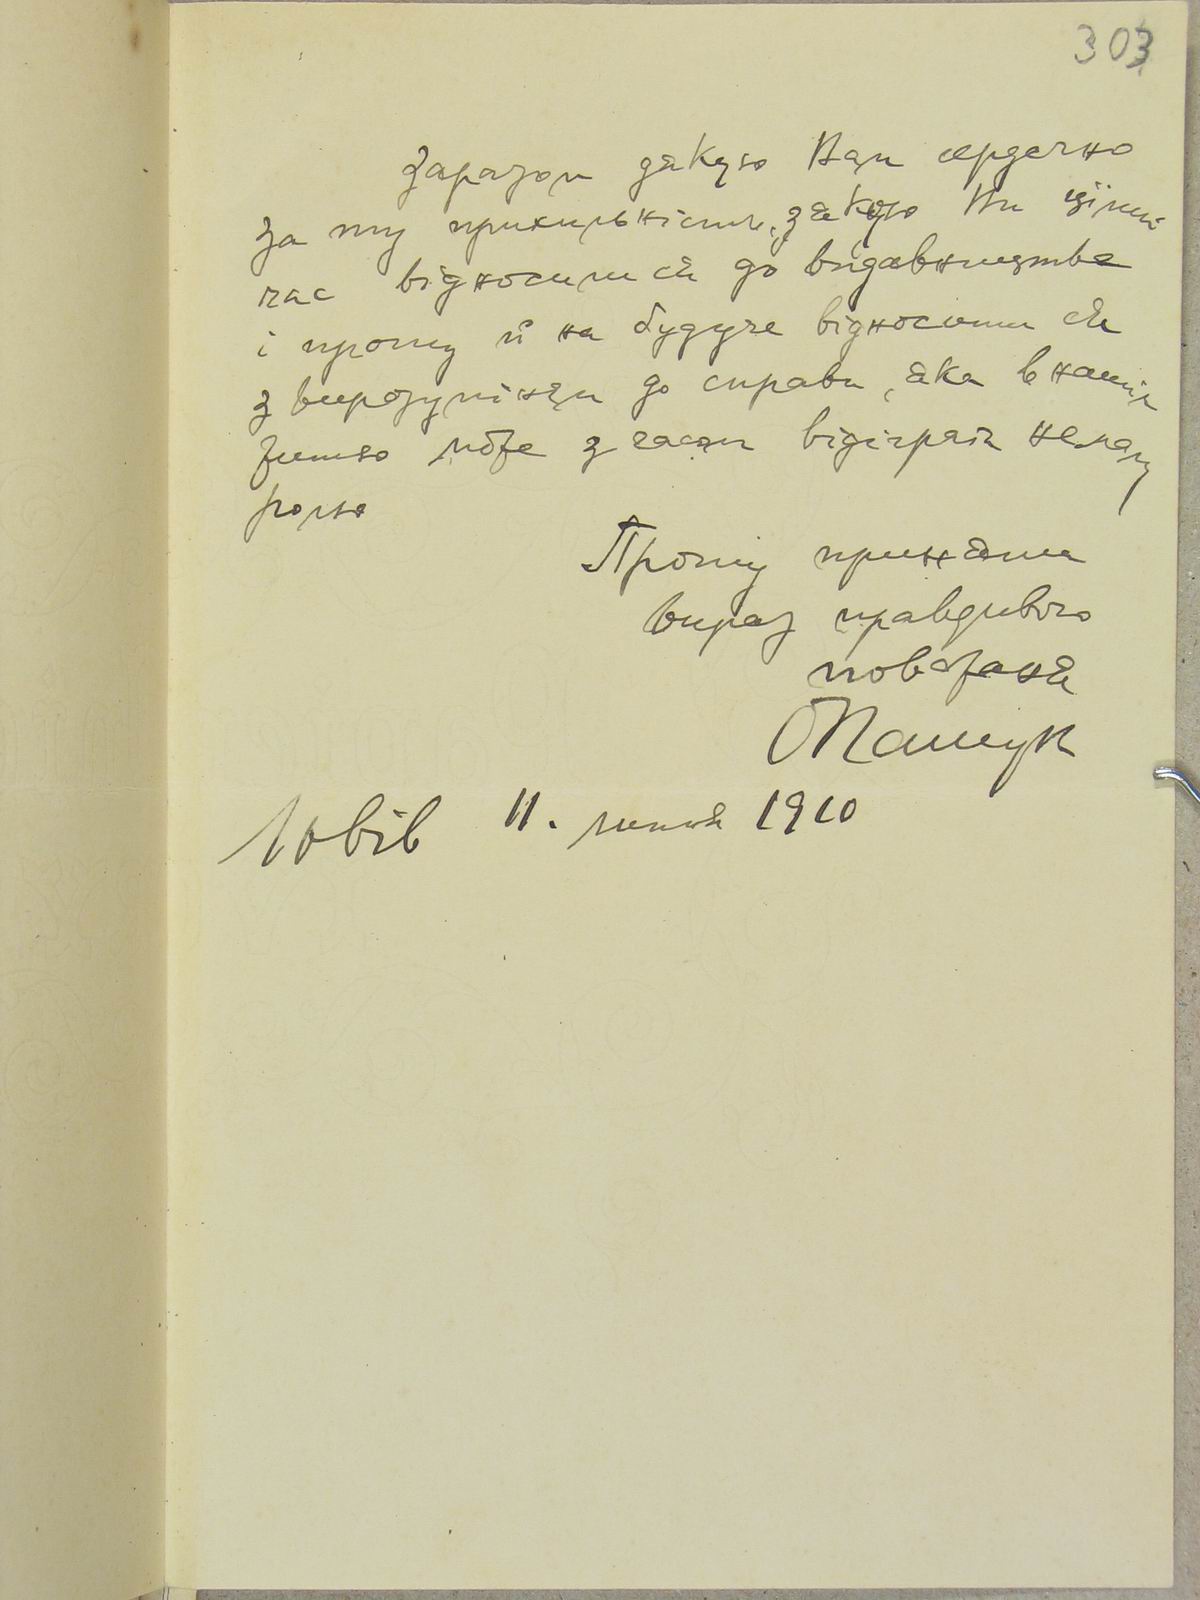 303
Заразом дякую Вам сердечно
за ту прихильність, з якою Ви цілий
час відносили ся до видавництва
і прошу й на будуче відносити ся
з вирозуміням до справи, яка в нашім
житю може з часом відіграти немалу
ролю
Прошу приняти
вираз правдивого
поважаня
ОПащук
Львів 11. липня 1910